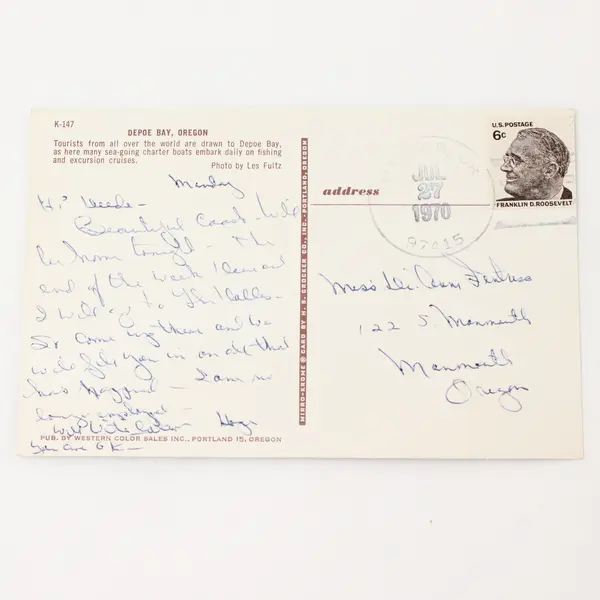 K-147
DEPOE BAY, OREGON
Tourists from all over the world are drawn to Depoe Bay,
as here many sea-going charter boats embark daily on fishing
and excursion cruises.
Photo by Les Fultz
Monday
Hi
Beautiful Coast - will
be home tonight - The
end of the week
I will go to The Dalles -
So come up there and we
will fill you in on all that
has happened - I am no
longer employed -
will write later
PUB. BY WESTERN COLOR SALES INC., PORTLAND 15, OREGON
MIRRO-KROME ® CARD BY H. S. CROCKER CO., INC. - PORTLAND, OREGON
address
JUL
27
1970
97415
U.S. POSTAGE
6c
FRANKLIN D. ROOSEVELT
Miss Ann
122 S. Monmouth
Monmouth
Oregon